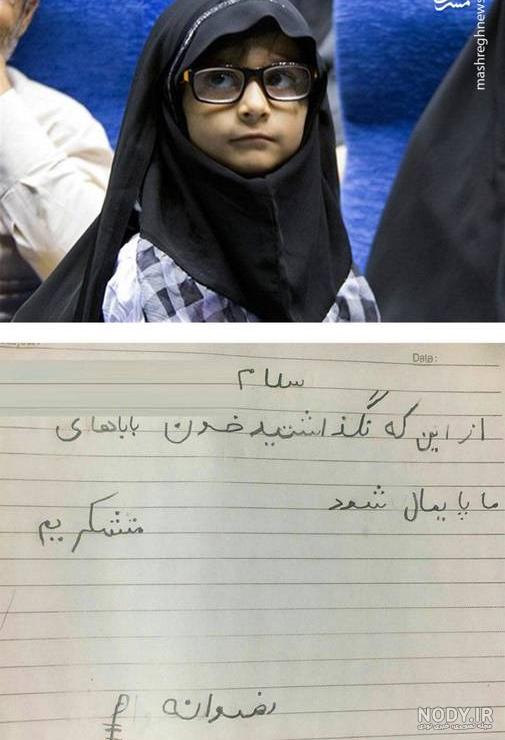 مشرق
mashreghnews
Date:
سلام
از این که نگذاشتید خون باباهای
ما پایمال شود
متشکریم
رضوانه
NODY.IR